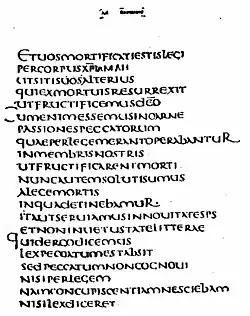 ETUOSMORTIFICATIESTISLEGI
PERCORPUS
UTSITISUOSALTERIUS
QUIEXMORTUISRESURREXIT
UTFRUCTIFICEMUSDEO
CUMENIMESSEMUSINCARNE
PASSIONESPECCATORUM
QUAEPERLEGEMERANTOPERABANTUR
INMEMBRISNOSTRIS
UTFRUCTIFICARENTMORTI
NUNCAUTEMSOLUTISUMUS
ALEGEMORTIS
INQUADETINEBAMUR
ITAUTSERUIAMUSINNOUITATESPS
ETNONINUETUSTATELITTERAE
QUIDERGODICEMUS
LEXPECCATUMESTABSIT
SEDPECCATUMNONCOGNOUI
NISIPERLEGEM
NAMCONCUPISCENTIAMNESCIEBAM
NISILEXDICERET